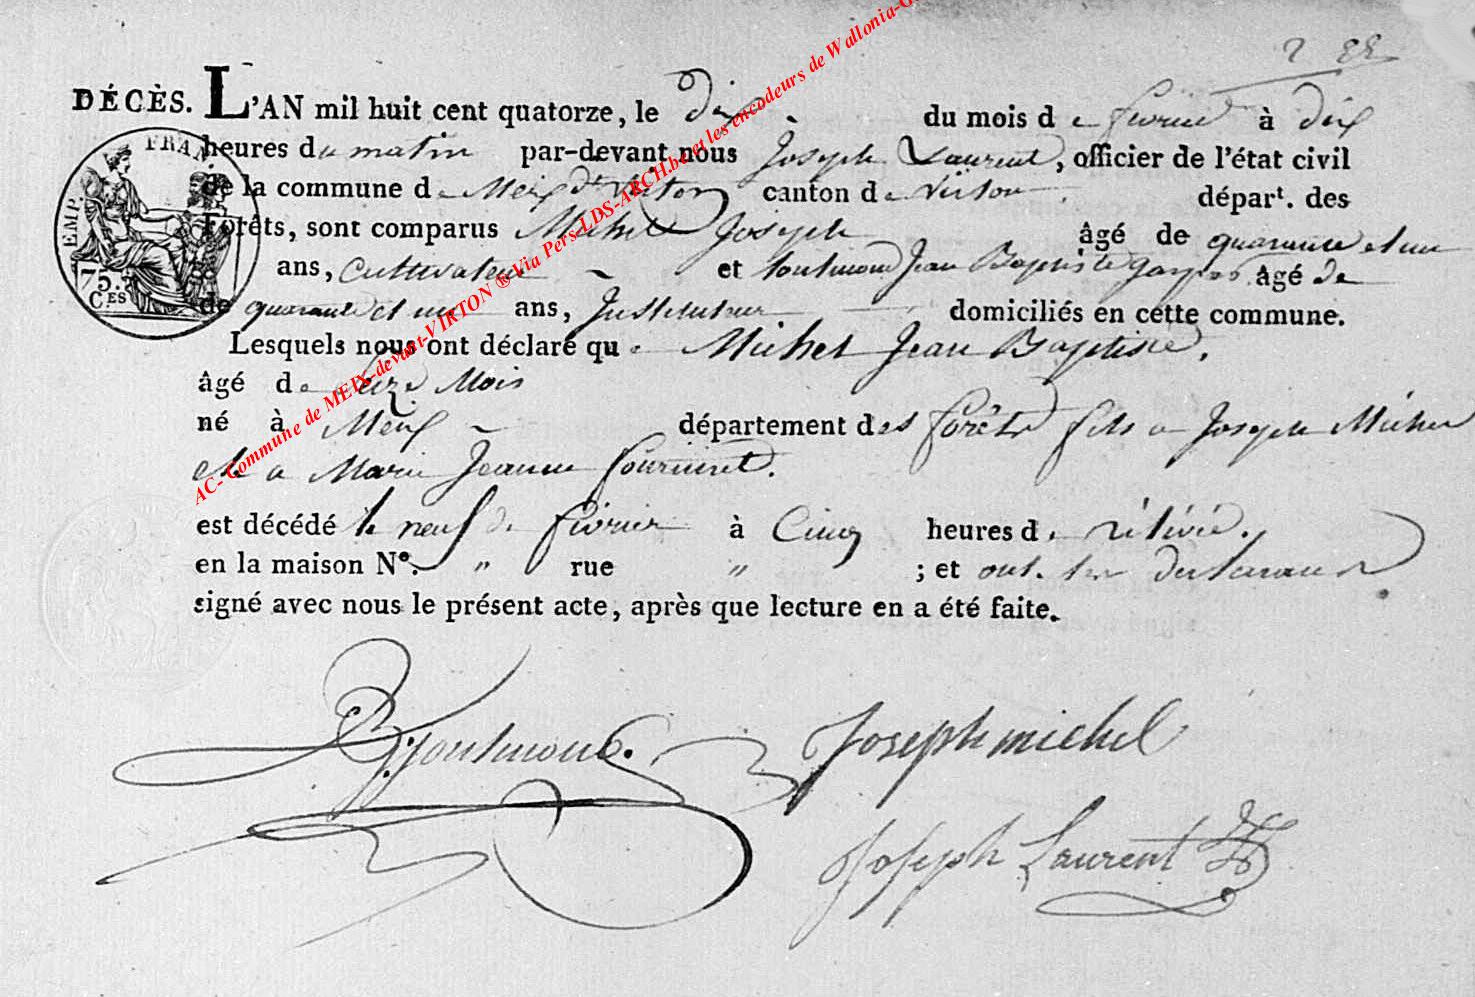 DÉCÈS. L'AN mil huit cent quatorze, le dix du mois de fevrier à dix
heures du matin par-devant nous Joseph Laurent, officier de l'état civil
de la commune de Meix dt Virton canton de Virton départ. des
Forêts, sont comparus Michel Joseph âgé de quarante et un
ans, Cultivateur et toutmond Jean Baptiste âgé de
de quarante et un ans, Instituteur domiciliés en cette commune.
Lesquels nous ont déclaré que Michel Jean Baptiste,
âgé de Mois
né à Meix département des forêts fils a Joseph Michel
et a Marie Jeanne fourniret.
est décédé le neuf de fevrier à Cinq heures de rélévée.
en la maison No. " rue " ; et ont les déclarans
signé avec nous le présent acte, après que lecture en a été faite.
EMP. FRAN.
75.
C.ES
AC- Commune de MEIX-devant-VIRTON ® Via Pers-LDS-ARCH.be et les encodeurs de Wallonia-G
Joseph michel
Joseph Laurent